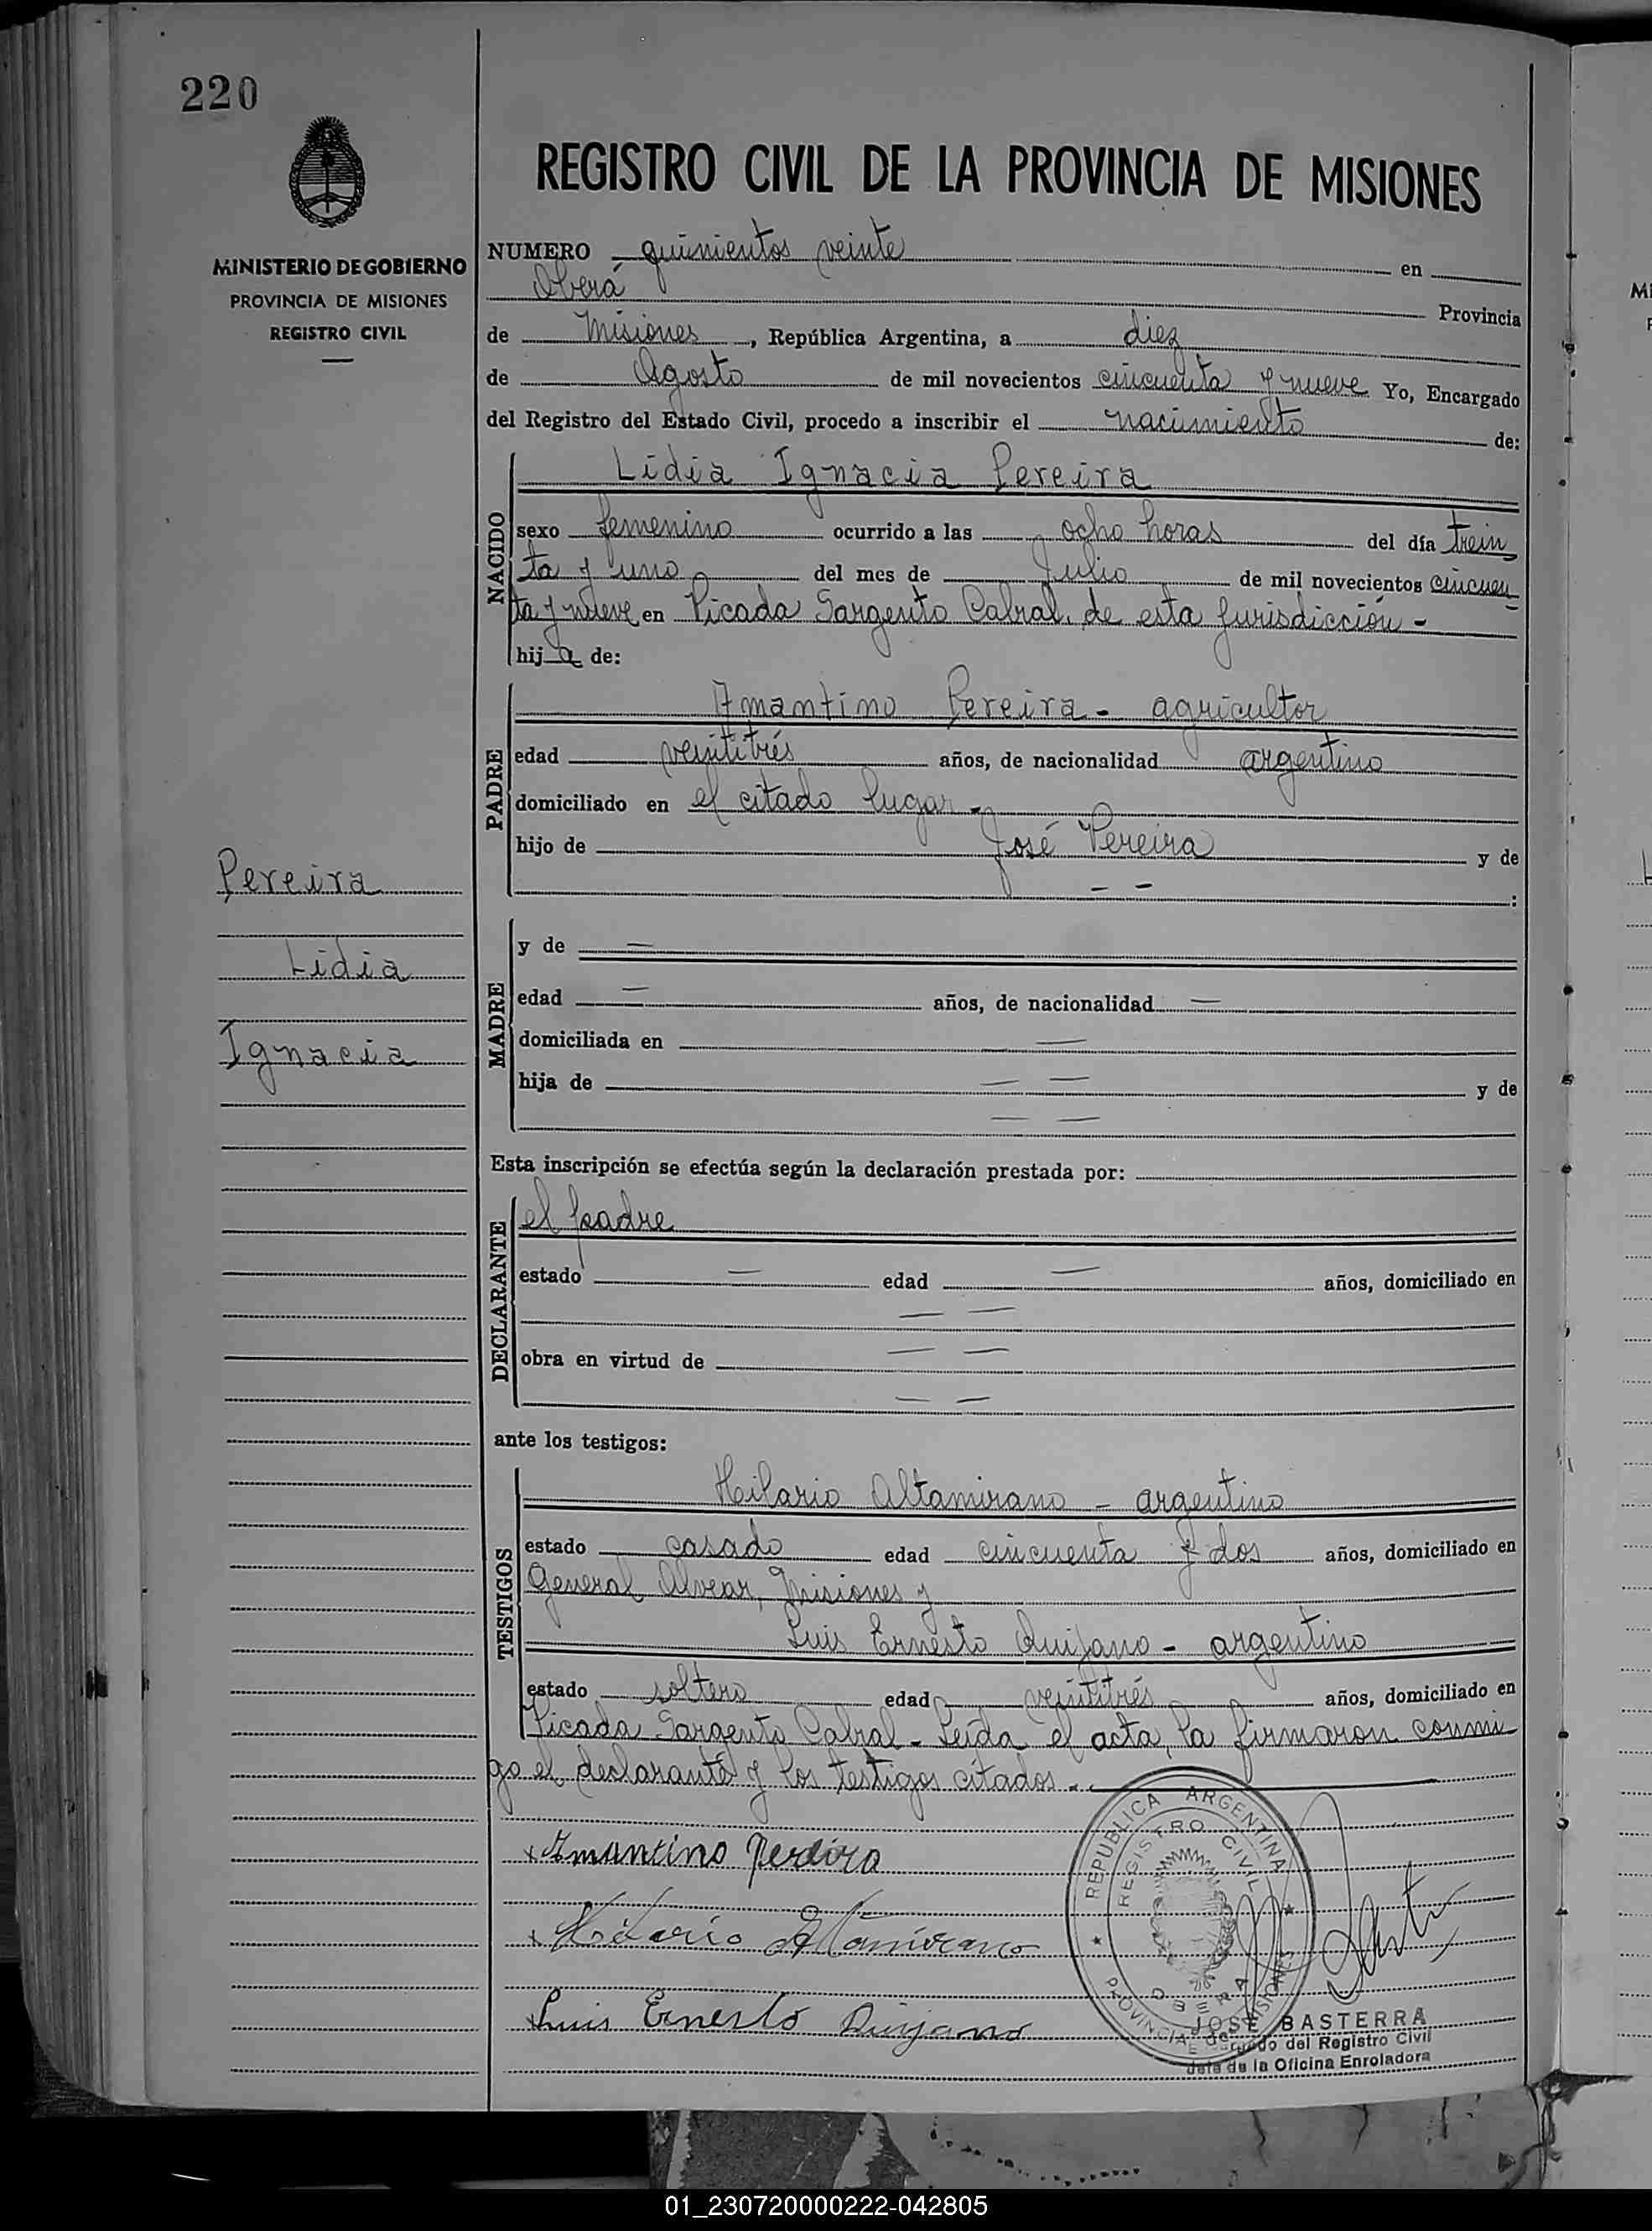 220
REGISTRO CIVIL DE LA PROVINCIA DE MISIONES
MINISTERIO DE GOBIERNO
PROVINCIA DE MISIONES
REGISTRO CIVIL
NUMERO quinientos veinte en
Oberá Provincia
de Misiones, República Argentina, a diez
de Agosto de mil novecientos cincuenta y nueve Yo, Encargado
del Registro del Estado Civil, procedo a inscribir el nacimiento de:
NACIDO
Lidia Ignacia Pereira
sexo femenino ocurrido a las ocho horas del día trein
ta y uno del mes de Julio de mil novecientos cincuen
ta y nueve en Picada Sargento Cabral, de esta jurisdicción -
hija de:
PADRE
Amantino Pereira - agricultor
edad veintitrés años, de nacionalidad argentino
domiciliado en el citado lugar -
hijo de José Pereira y de
- - :
Pereira
Lidia
Ignacia
MADRE
y de —
edad — años, de nacionalidad —
domiciliada en —
hija de — — y de
— —
Esta inscripción se efectúa según la declaración prestada por:
DECLARANTE
el padre
estado — edad — años, domiciliado en
— —
obra en virtud de — —
— —
ante los testigos:
TESTIGOS
Hilario Altamirano - argentino
estado casado edad cincuenta y dos años, domiciliado en
General Alvear, Misiones y
Luis Ernesto Quijano - argentino
estado soltero edad veintitrés años, domiciliado en
Picada Sargento Cabral - Leída el acta, la firmaron conmi
go el declarante y los testigos citados -
Amantino Pereira
Hilario Altamirano
Luis Ernesto Quijano
REPUBLICA ARGENTINA
REGISTRO CIVIL
OBERA
PROVINCIA DE MISIONES
JOSE BASTERRA
Encargado del Registro Civil
Jefe de la Oficina Enroladora
01_230720000222-042805